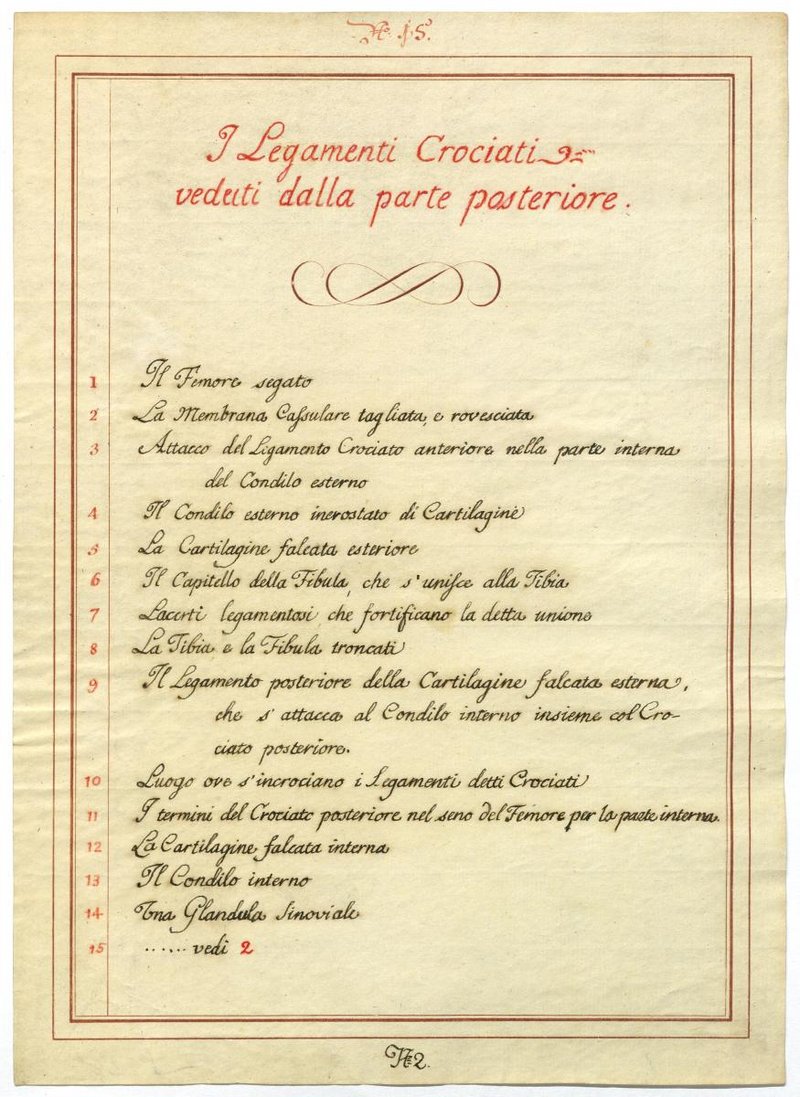 No. 15.
I Legamenti Crociati
veduti dalla parte posteriore.
1 Il Femore segato
2 La Membrana Cassulare tagliata, e rovesciata
3 Attacco del Ligamento Crociato anteriore nella parte interna
del Condilo esterno
4 Il Condilo esterno incrostato di Cartilagine
5 La Cartilagine falcata esteriore
6 Il Capitello della Fibula, che s'unisce alla Tibia
7 Lacerti legamentosi, che fortificano la detta unione
8 La Tibia, e la Fibula troncati
9 Il Legamento posteriore della Cartilagine falcata esterna,
che s'attacca al Condilo interno insieme col Cro-
ciato posteriore.
10 Luogo ove s'incrociano i Legamenti detti Crociati
11 I termini del Crociato posteriore nel seno del Femore per la parte interna.
12 La Cartilagine falcata interna
13 Il Condilo interno
14 Una Glandula Sinoviale
15 ...... vedi 2